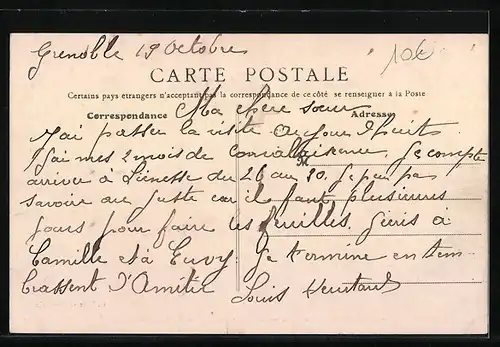 Grenoble 19 Octobre
10€
CARTE POSTALE
Certains pays etrangers n'acceptant pas la correspondance de ce côté se renseigner a la Poste
Correspondance
Adresse
Ma chere sœur
J'ai passer la visite Aujourd'huit
J'ai mes 2 mois de convalaisence. Je compte
M
arriver a Lienesse du 26 au 30. Je peu pas
savoire au juste car il faut plusieurs
jours pour faire les feuilles. Jecris à
Camille et à Cuvy. Je termine en tem
brassent d'Amitier Louis